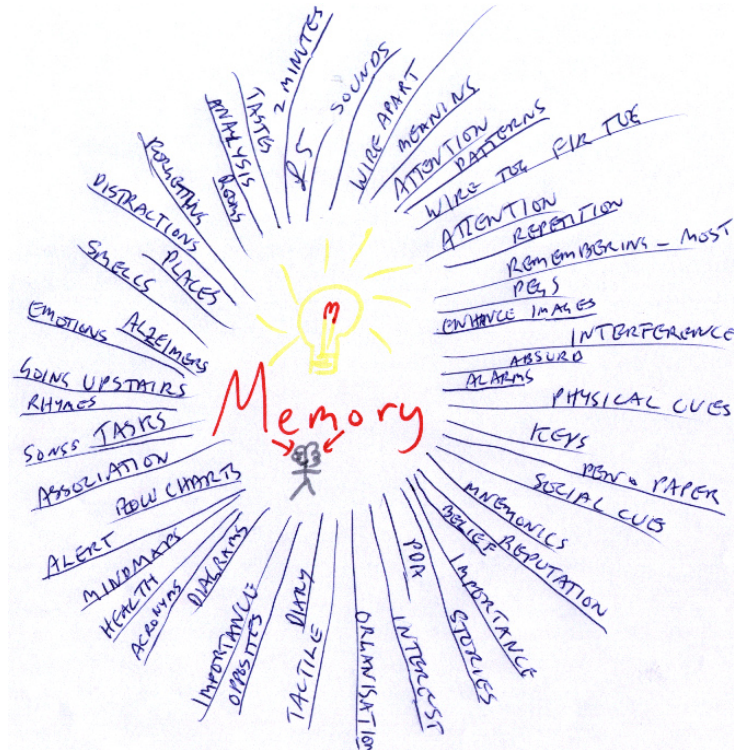 2 MINUTES
SOUNDS
WIRE APART
MEANING
ATTENTION
PATTERNS
WIRE TOG FIR TOG
ATTENTION
REPETITION
REMEMBERING - MOST
PEGS
ENHANCE IMAGES
INTERFERENCE
ABSURD
ALARMS
PHYSICAL CUES
KEYS
PEN & PAPER
SOCIAL CUES
MNEMONICS
REPUTATION
BELIEF
IMPORTANCE
STORIES
PDA
INTEREST
ORGANISATION
DIARY
TACTILE
OPPOSITES
IMPORTANCE
DIAGRAMS
ACRONYMS
HEALTH
MINDMAPS
ALERT
FLOW CHARTS
ASSOCIATION
TASKS
SONGS
RHYMES
GOING UPSTAIRS
ALZEIMERS
EMOTIONS
SMELLS
PLACES
DISTRACTIONS
FORGETTING
ROOMS
ANALYSIS
TASTES
M
Memory